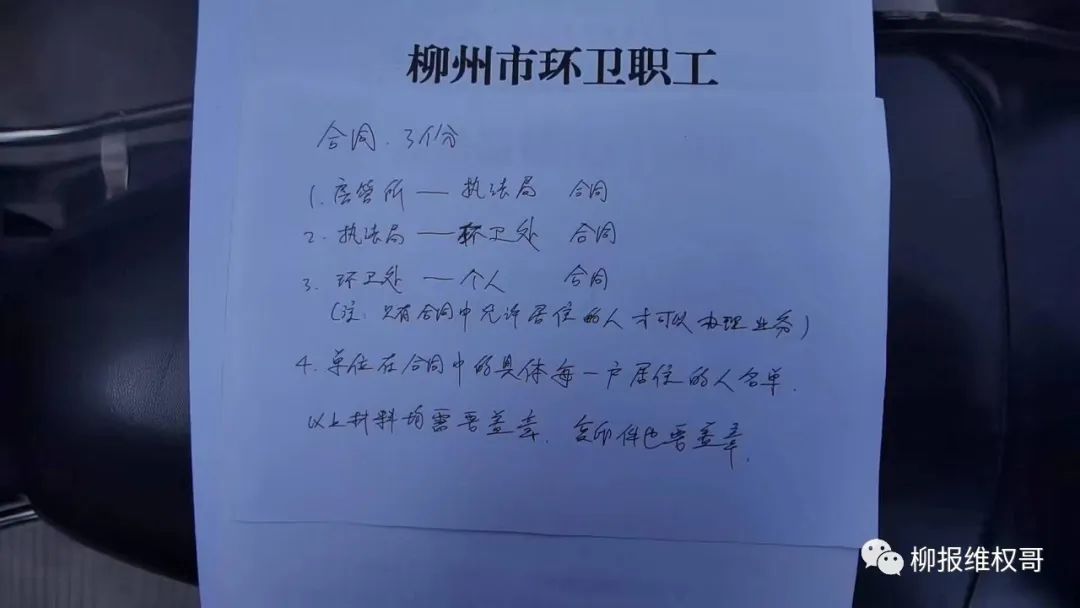 柳州市环卫职工
合同.3个份
1.房管所——执法局 合同
2.执法局——环卫处 合同
3.环卫处——个人 合同
(注:只有合同中允许居住的人才可以办理业务)
4.单位在合同中的具体每一户居住的人名单.
以上材料均需要盖章.复印件也要盖章.
柳报维权哥